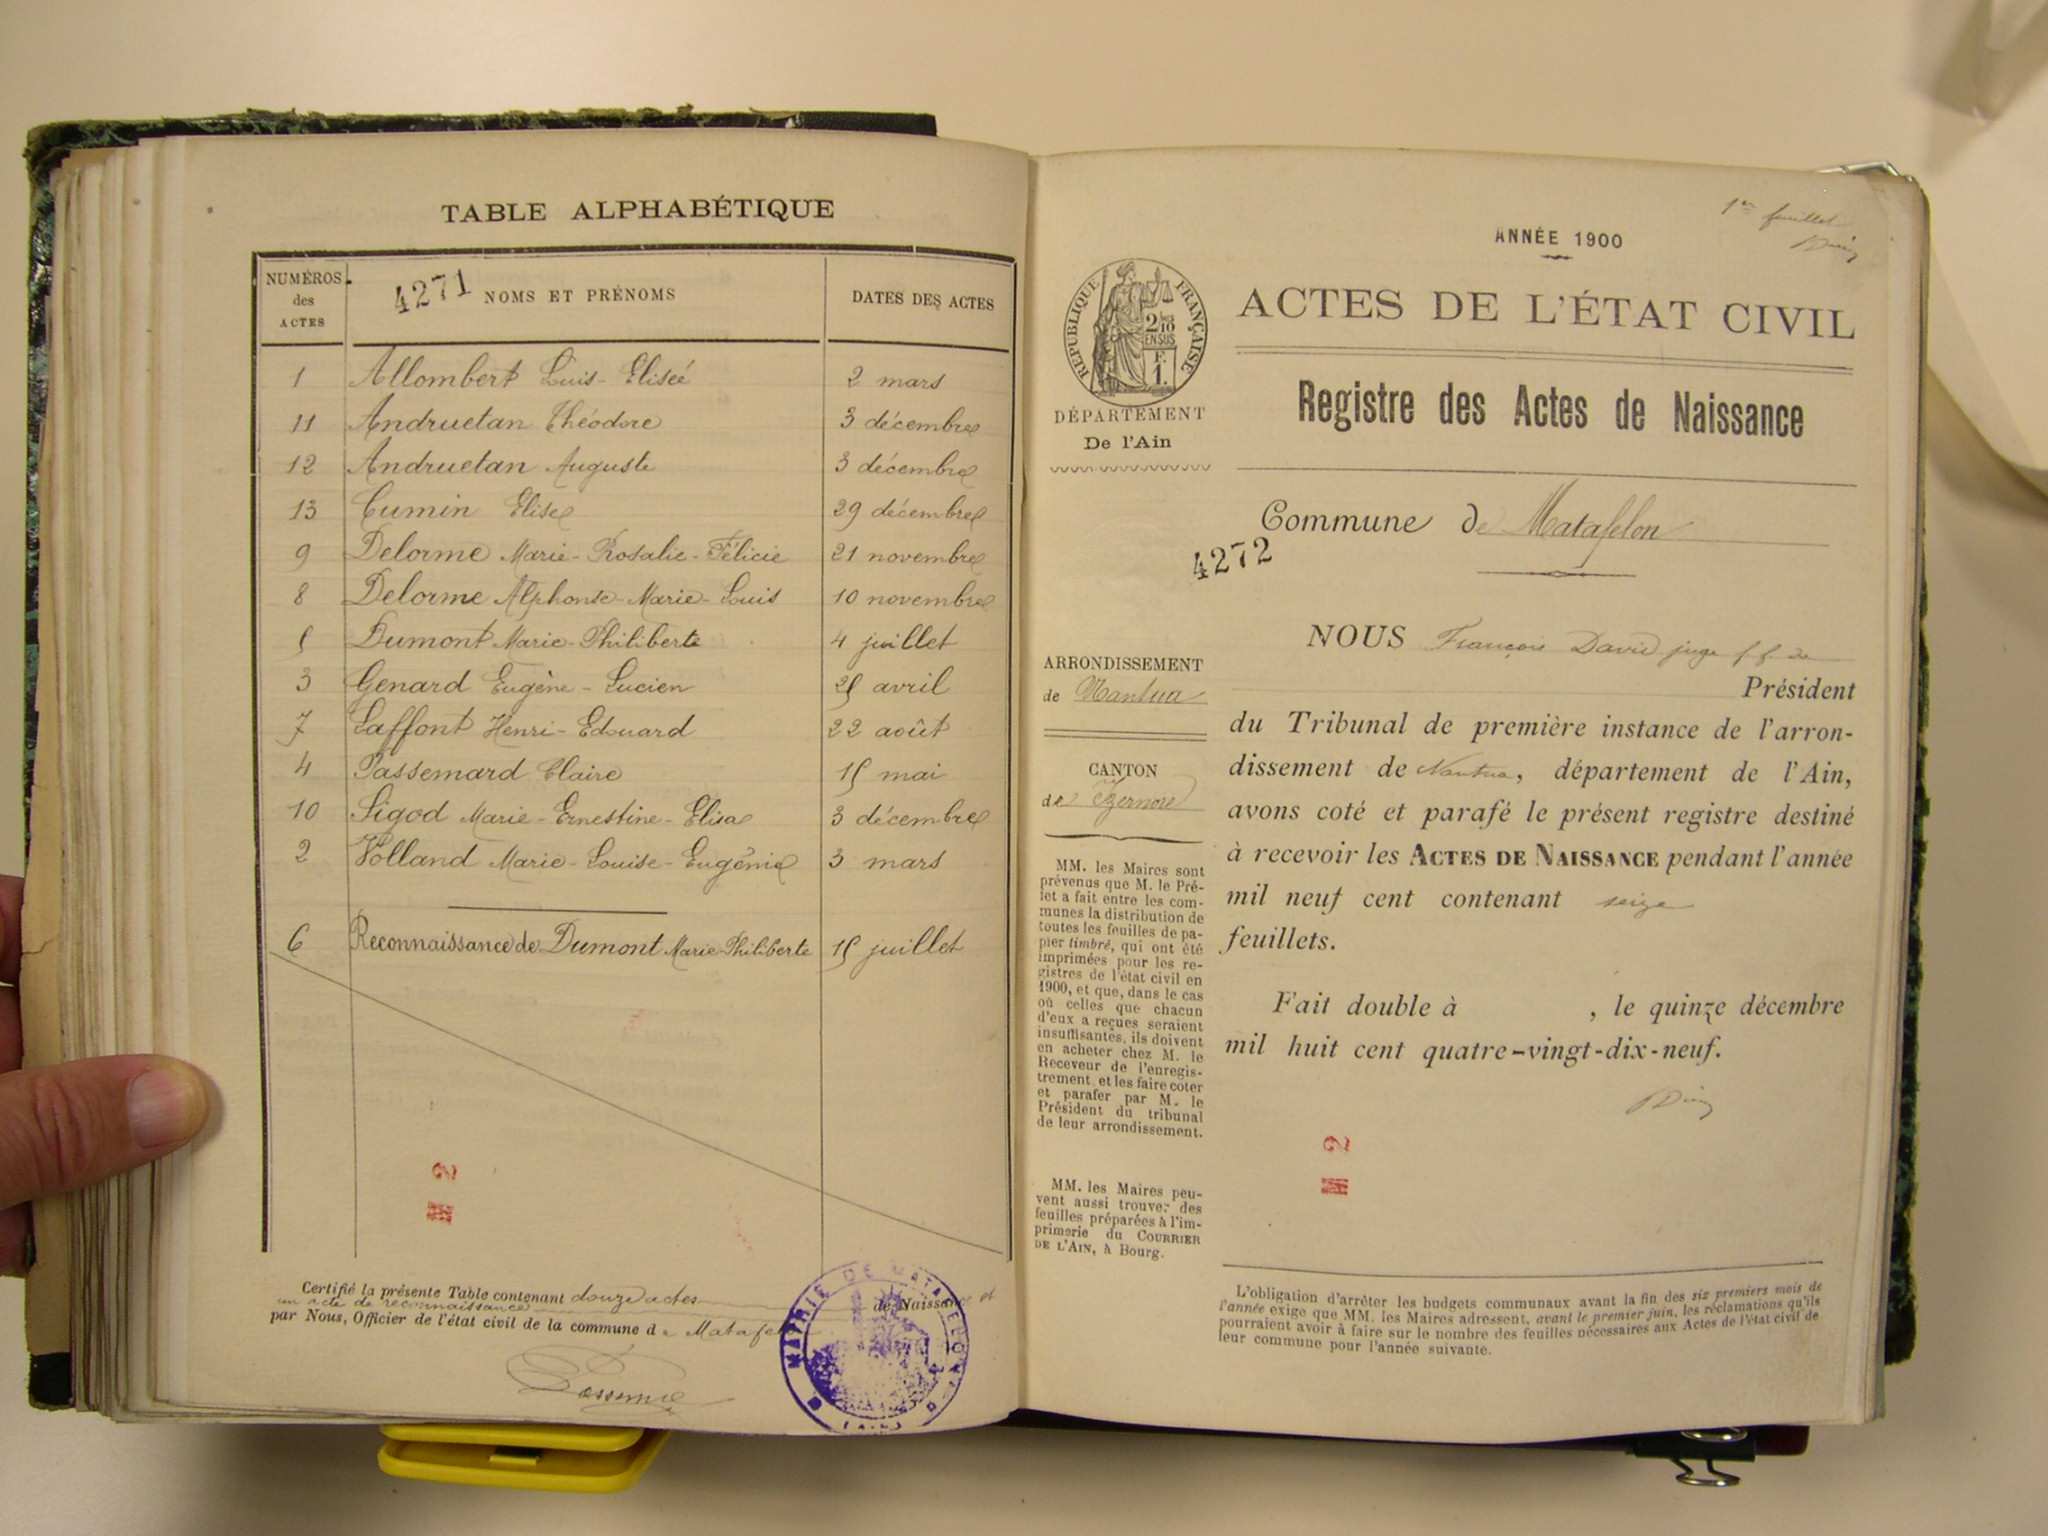 TABLE ALPHABÉTIQUE
NUMÉROS des ACTES
4271 NOMS ET PRÉNOMS
DATES DES ACTES
1 Allombert Louis-Eliseé 2 mars
11 Andruetan Théodore 3 décembre
12 Andruetan Auguste 3 décembre
13 Cumin Elise 29 décembre
9 Delorme Marie-Rosalie-Félicie 21 novembre
8 Delorme Alphonse-Marie-Louis 10 novembre
5 Dumont Marie-Philiberte 4 juillet
3 Genard Eugène-Lucien 25 avril
7 Laffont Henri-Edouard 22 août
4 Passemard Claire 15 mai
10 Sigod Marie-Ernestine-Elisa 3 décembre
2 Volland Marie-Louise-Eugénie 3 mars
6 Reconnaissance de Dumont Marie-Philiberte 15 juillet
M 2
Certifié la présente Table contenant douze actes de Naissance et
un acte de reconnaissance
par Nous, Officier de l'état civil de la commune de Matafe
MAIRIE DE MATAFELON
1er feuillet
ANNÉE 1900
RÉPUBLIQUE FRANÇAISE
2/10 EN SUS
F. 1.
DÉPARTEMENT
De l'Ain
ACTES DE L'ÉTAT CIVIL
Registre des Actes de Naissance
Commune de Matafelon
4272
ARRONDISSEMENT
de Nantua
CANTON
de Izernore
MM. les Maires sont
prévenus que M. le Pré-
fet a fait entre les com-
munes la distribution de
toutes les feuilles de pa-
pier timbré, qui ont été
imprimées pour les re-
gistres de l'état civil en
1900, et que, dans le cas
où celles que chacun
d'eux a reçues seraient
insuffisantes, ils doivent
en acheter chez M. le
Receveur de l'enregis-
trement, et les faire coter
et parafer par M. le
Président du tribunal
de leur arrondissement.
MM. les Maires peu-
vent aussi trouver des
feuilles préparées à l'im-
primerie du COURRIER
DE L'AIN, à Bourg.
NOUS François David juge f.f. de
Président
du Tribunal de première instance de l'arron-
dissement de Nantua, département de l'Ain,
avons coté et parafé le présent registre destiné
à recevoir les ACTES DE NAISSANCE pendant l'année
mil neuf cent contenant seize
feuillets.
Fait double à , le quinze décembre
mil huit cent quatre-vingt-dix-neuf.
M 2
L'obligation d'arrêter les budgets communaux avant la fin des six premiers mois de
l'année exige que MM. les Maires adressent, avant le premier juin, les réclamations qu'ils
pourraient avoir à faire sur le nombre des feuilles nécessaires aux Actes de l'état civil de
leur commune pour l'année suivante.